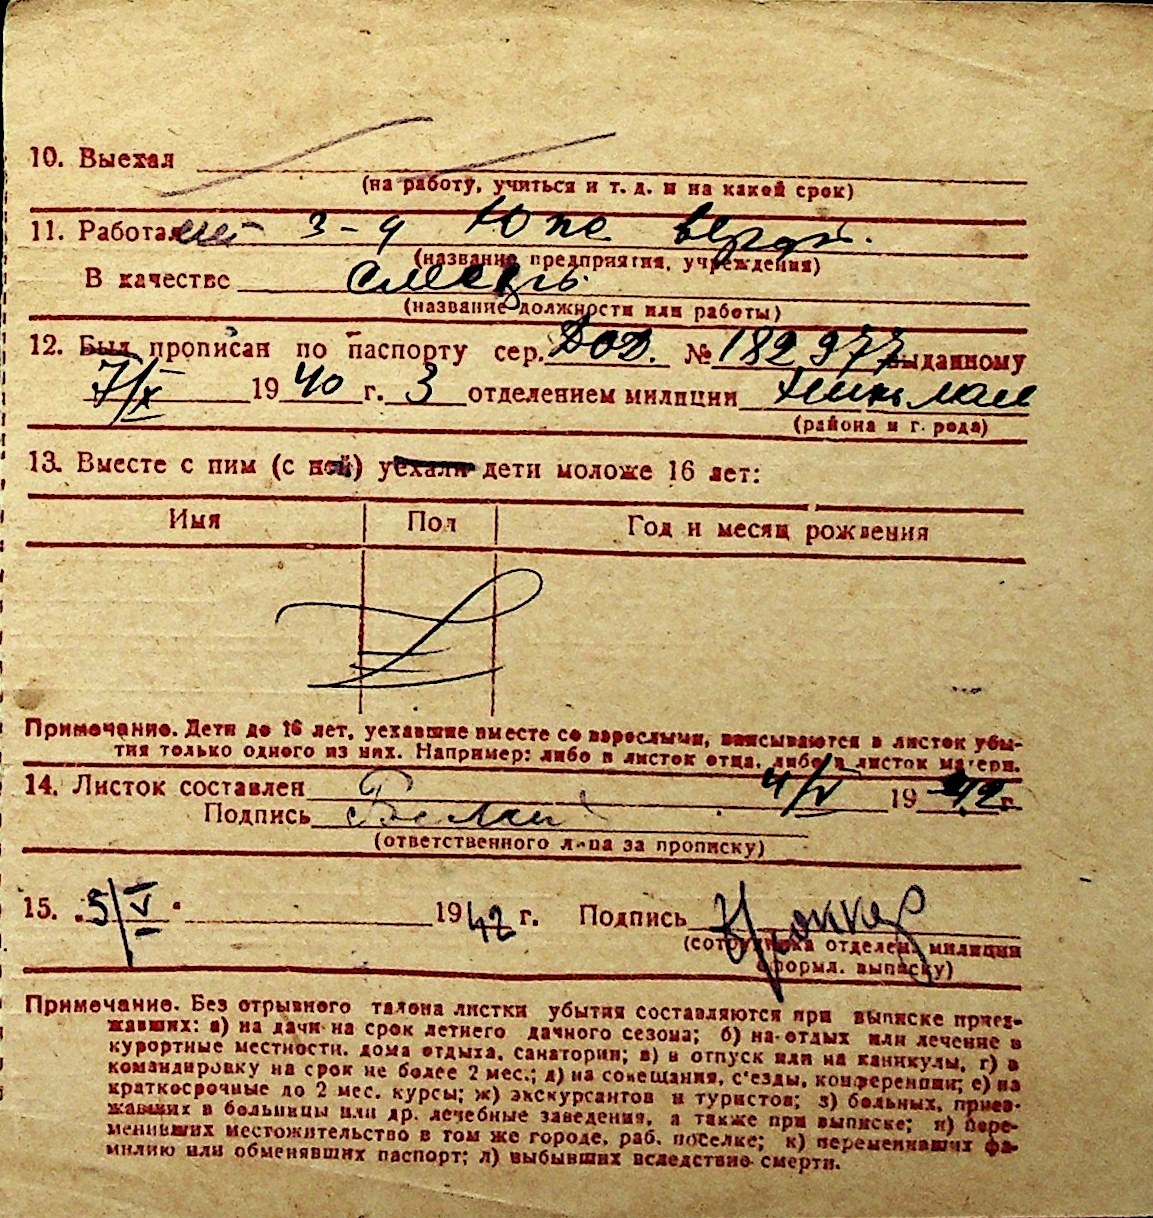 10. Выехал
(на работу, учиться и т. д. и на какой срок)
11. Работал 3-д
(название предприятия, учреждения)
В качестве слесарь
(название должности или работы)
12. Был прописан по паспорту сер. № 182 977 выданному
7/X 19 40 г. 3 отделением милиции
(района и города)
13. Вместе с ним (с ней) уехали дети моложе 16 лет:
Имя Пол Год и месяц рождения
Примечание. Дети до 16 лет, уехавшие вместе со взрослыми, вписываются в листок убы-
тия только одного из них. Например: либо в листок отца, либо в листок матери.
14. Листок составлен 4/V 19 42 г.
Подпись
(ответственного лица за прописку)
15. „5/V“ 1942 г. Подпись
(сотрудника отделен. милиции
оформл. выписку)
Примечание. Без отрывного талона листки убытия составляются при выписке приез-
жавших: а) на дачи на срок летнего дачного сезона; б) на отдых или лечение в
курортные местности, дома отдыха, санатории; в) в отпуск или на каникулы, г) в
командировку на срок не более 2 мес.; д) на совещания, с'езды, конференции; е) на
краткосрочные до 2 мес. курсы; ж) экскурсантов и туристов; з) больных, приез-
жавших в больницы или др. лечебные заведения, а также при выписке; и) пере-
менивших местожительство в том же городе, раб. поселке; к) переменивших фа-
милию или обменявших паспорт; л) выбывших вследствие смерти.